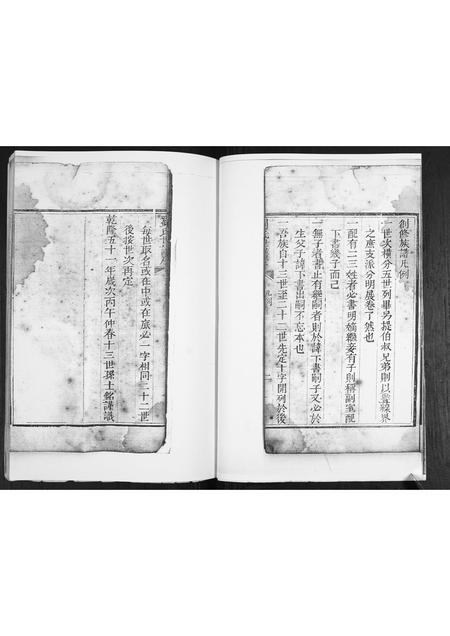 創修族譜凡例
一世次橫分五世列畢另提伯叔兄弟則以豎線界
之庶支派分明展卷了然也
一配有二三姓者必書明嫡繼妾有子則稱副室配
下書幾子而已
一無子者書止有繼嗣者則於諱下書嗣子又必於
生父子諱下書出嗣不忘本也
一吾族自十三世至二十二世先定十字開列於後
每世取名或在中或在底必一字相同二十二世
後按世次再定
乾隆五十一年歲次丙午仲春十三世孫士銘謹識